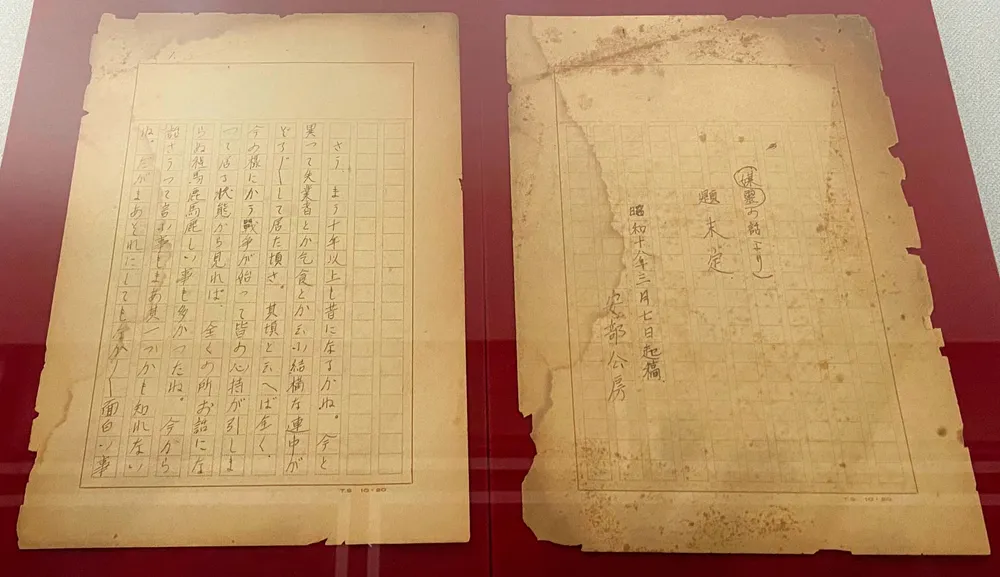 （媒霊の話より）
題未定
昭和十八年三月七日起稿
安部公房
さう もう十年以上も昔になるかね。今と
異って失業者とか乞食とか云ふ結構な連中が
ぞろ〳〵して居た頃さ。其頃と云へば全く、
今の様にかう戦争が始って皆の心持が引しま
って居る状態から見れば、全くの所お話にな
らぬ程馬鹿馬鹿しい事も多かつたね。今から
話さうって言ふ事もまあ其一つかも知れない
ね。だがまあそれにしても なか〳〵面白い事
T.S 10×20
T.S 10×20